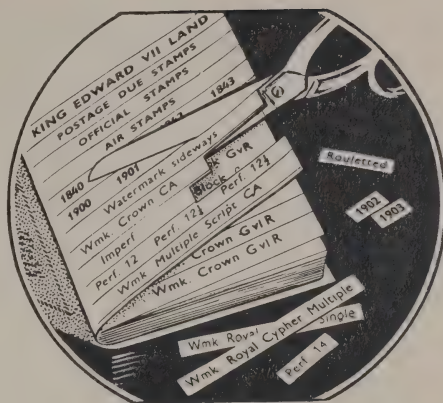 KING EDWARD VII LAND
POSTAGE DUE STAMPS
OFFICIAL STAMPS
AIR STAMPS 1843
1840 1901
1900 Watermark sideways GvR
Wmk. Crown CA Block
Imperf Perf. 12½
Perf. 12 Perf. 12½
Wmk Multiple Script CA
Wmk. Crown GvIR
Wmk. Crown GvIR
Rouletted
1902
1903
Wmk Royal Single
Wmk Royal Cypher Multiple
Perf 14